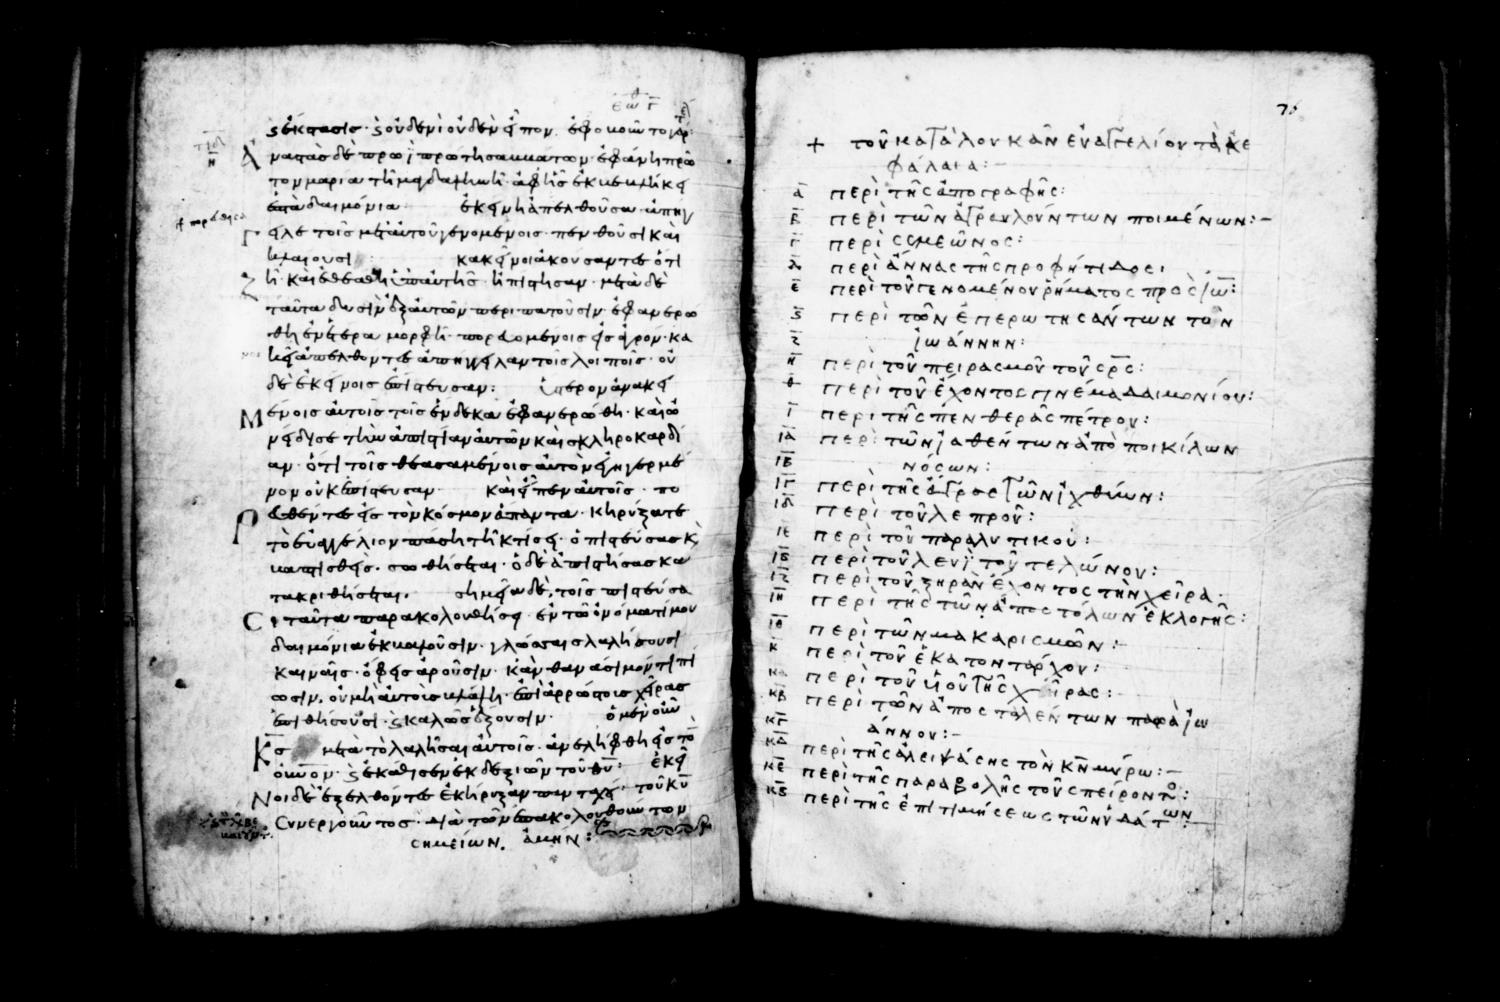 ἔκστασις· καὶ οὐδενὶ οὐδὲν εἶπον· ἐφοβοῦντο γάρ:
ναστὰς δὲ πρωῒ πρώτη σαββάτων· ἐφάνη πρῶ
τον μαρία τῆ μαγδαληνῆ· ἀφ ἧς ἐκβεβλήκει
ἑπτὰ δαιμόνια· ἐκείνη ἀπελθοῦσα ἀπήγ
γειλε τοῖς μετ αὐτοῦ γενομένοις· πενθοῦσι καὶ
κλαίουσι· κακεῖνοι ἀκούσαντες ὅτι
ζῆ· καὶ ἐθεάθη ὑπ αὐτῆς· ἠπίστησαν· μετὰ δὲ
ταῦτα δυσὶν ἐξ αὐτῶν περιπατοῦσιν· ἐφανερώ
θη ἐν ἑτέρα μορφῆ· πορευομένοις εἰς ἀγρόν· κα
κεῖνοι ἀπελθόντες ἀπήγγειλαν τοῖς λοιποῖς· οὐ
δὲ ἐκείνοις ἐπίστευσαν: ὕστερον ἀνακει
μένοις αὐτοῖς τοῖς ἕνδεκα ἐφανερώθη· καὶ ὠ
νείδισε τὴν ἀπιστίαν αὐτῶν καὶ σκληροκαρδί
αν· ὅτι τοῖς θεασαμένοις αὐτὸν ἐγηγερμέ
νον οὐκ ἐπίστευσαν· καὶ εἶπεν αὐτοῖς· πο
ρευθέντες εἰς τὸν κόσμον ἅπαντα· κηρύξατε
τὸ εὐαγγέλιον πάση τῆ κτίσει· ὁ πιστεύσας κ
βαπτισθεὶς· σωθήσεται· ὁ δὲ ἀπιστήσας κα
τακριθήσεται· σημεῖα δὲ, τοῖς πιστεύσα
σι ταῦτα παρακολουθήσει· ἐν τῶ ὀνόματί μου
δαιμόνια ἐκβαλοῦσιν· γλώσσαις λαλήσουσι
καιναῖς· ὄφεις ἀροῦσιν· κἂν θανάσιμόν τι πί
ωσιν, οὐ μὴ αὐτοὺς βλάψη· ἐπὶ ἀρρώστους χεῖρας
ἐπιθήσουσι· καὶ καλῶς ἕξουσιν· ὁ μὲν οὖν
κς μετὰ τὸ λαλῆσαι αὐτοῖς· ἀνελήφθη εἰς τὸ
οὐνον· καὶ ἐκάθισεν ἐκ δεξιῶν τοῦ θυ: ἐκεῖ
νοι δὲ ἐξελθόντες ἐκήρυξαν πανταχοῦ· τοῦ κυ
συνεργοῦντος· διὰ τῶν ἐπακολουθούντων
σημείων. ἀμήν:
75
+ τοῦ κατὰ λουκᾶν εὐαγγελίου τὰ κε
φάλαια:
α περὶ τῆς ἀπογραφῆς:
β περὶ τῶν ἀγραυλούντων ποιμένων:
γ περὶ συμεῶνος:
δ περὶ ἄννας τῆς προφήτιδος:
ε περὶ τοῦ γενομένου ῥήματος πρὸς ἰω:
ς περὶ τῶν ἐπερωτησάντων τὸν
ζ ἰωάννην:
η περὶ τοῦ πειρασμοῦ τοῦ σρς:
θ περὶ τοῦ ἔχοντος πνεῦμα δαιμονίου:
ι περὶ τῆς πενθερᾶς πέτρου:
ια περὶ τῶν ἰαθέντων ἀπὸ ποικίλων
ιβ νόσων:
ιγ περὶ τῆς ἄγρας τῶν ἰχθύων:
ιδ περὶ τοῦ λεπροῦ:
ιε περὶ τοῦ παραλυτικοῦ:
ις περὶ τοῦ λευὶ τοῦ τελώνου:
ιζ περὶ τοῦ ξηρὰν ἔχοντος τὴν χεῖρα·
ιη περὶ τῆς τῶν ἀποστόλων ἐκλογῆς:
ιθ περὶ τῶν μακαρισμῶν:
κ περὶ τοῦ ἑκατοντάρχου:
κα περὶ τοῦ υἱοῦ τῆς χήρας:
κβ περὶ τῶν ἀποσταλέντων παρὰ ἰω
κγ άννου:
κδ περὶ τῆς ἀλειψάσης τὸν κν μύρω:
κε περὶ τῆς παραβολῆς τοῦ σπείροντος:
κς περὶ τῆς ἐπιτιμήσεως τῶν ὑδάτων